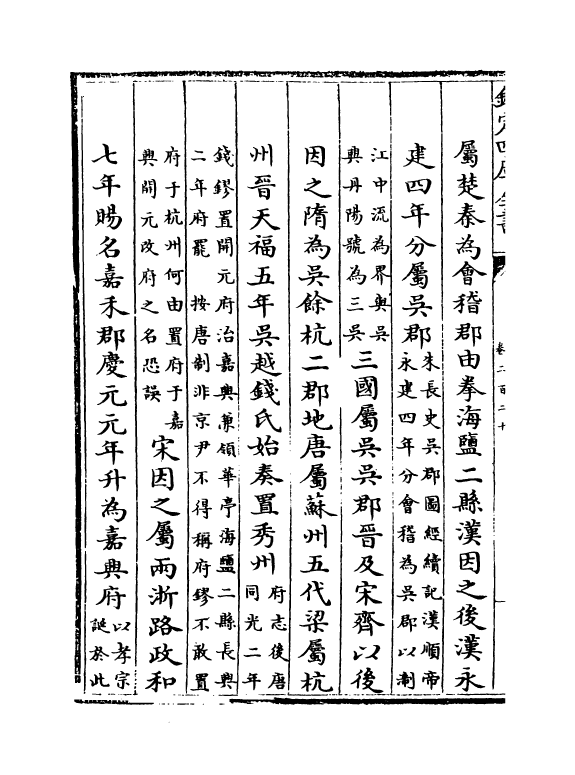 欽定四庫全書
卷二百二十
屬楚秦為會稽郡由拳海鹽二縣漢因之後漢永
建四年分屬吳郡朱長史吳郡圖經續記漢順帝永建四年分會稽為吳郡以淛
江中流為界與吳興丹陽號為三吳三國屬吳吳郡晉及宋齊以後
因之隋為吳餘杭二郡地唐屬蘇州五代梁屬杭
州晉天福五年吳越錢氏始奏置秀州府志後唐同光二年
錢鏐置開元府治嘉興兼領華亭海鹽二縣長興二年府罷 按唐制非京尹不得稱府鏐不敢置
府于杭州何由置府于嘉興開元改府之名恐誤宋因之屬兩浙路政和
七年賜名嘉禾郡慶元元年升為嘉興府以孝宗誕於此